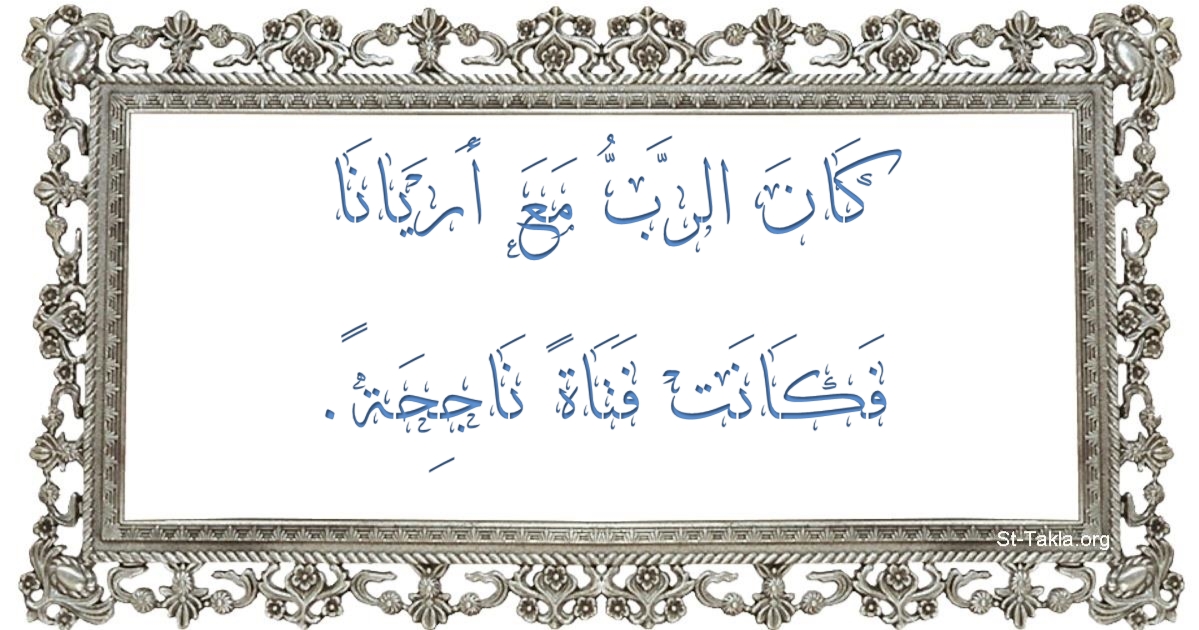 كَانَ الرَّبُّ مَعَ أَرْيَانَا
فَكَانَتْ فَتَاةً نَاجِحَةً.
St-Takla.org